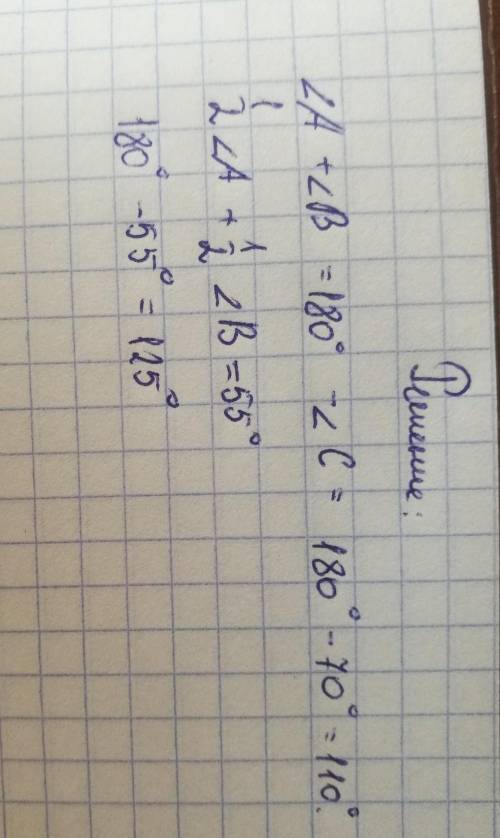 Решение:
∠A + ∠B = 180° - ∠C = 180° - 70° = 110°.
1/2 ∠A + 1/2 ∠B = 55°
180° - 55° = 125°